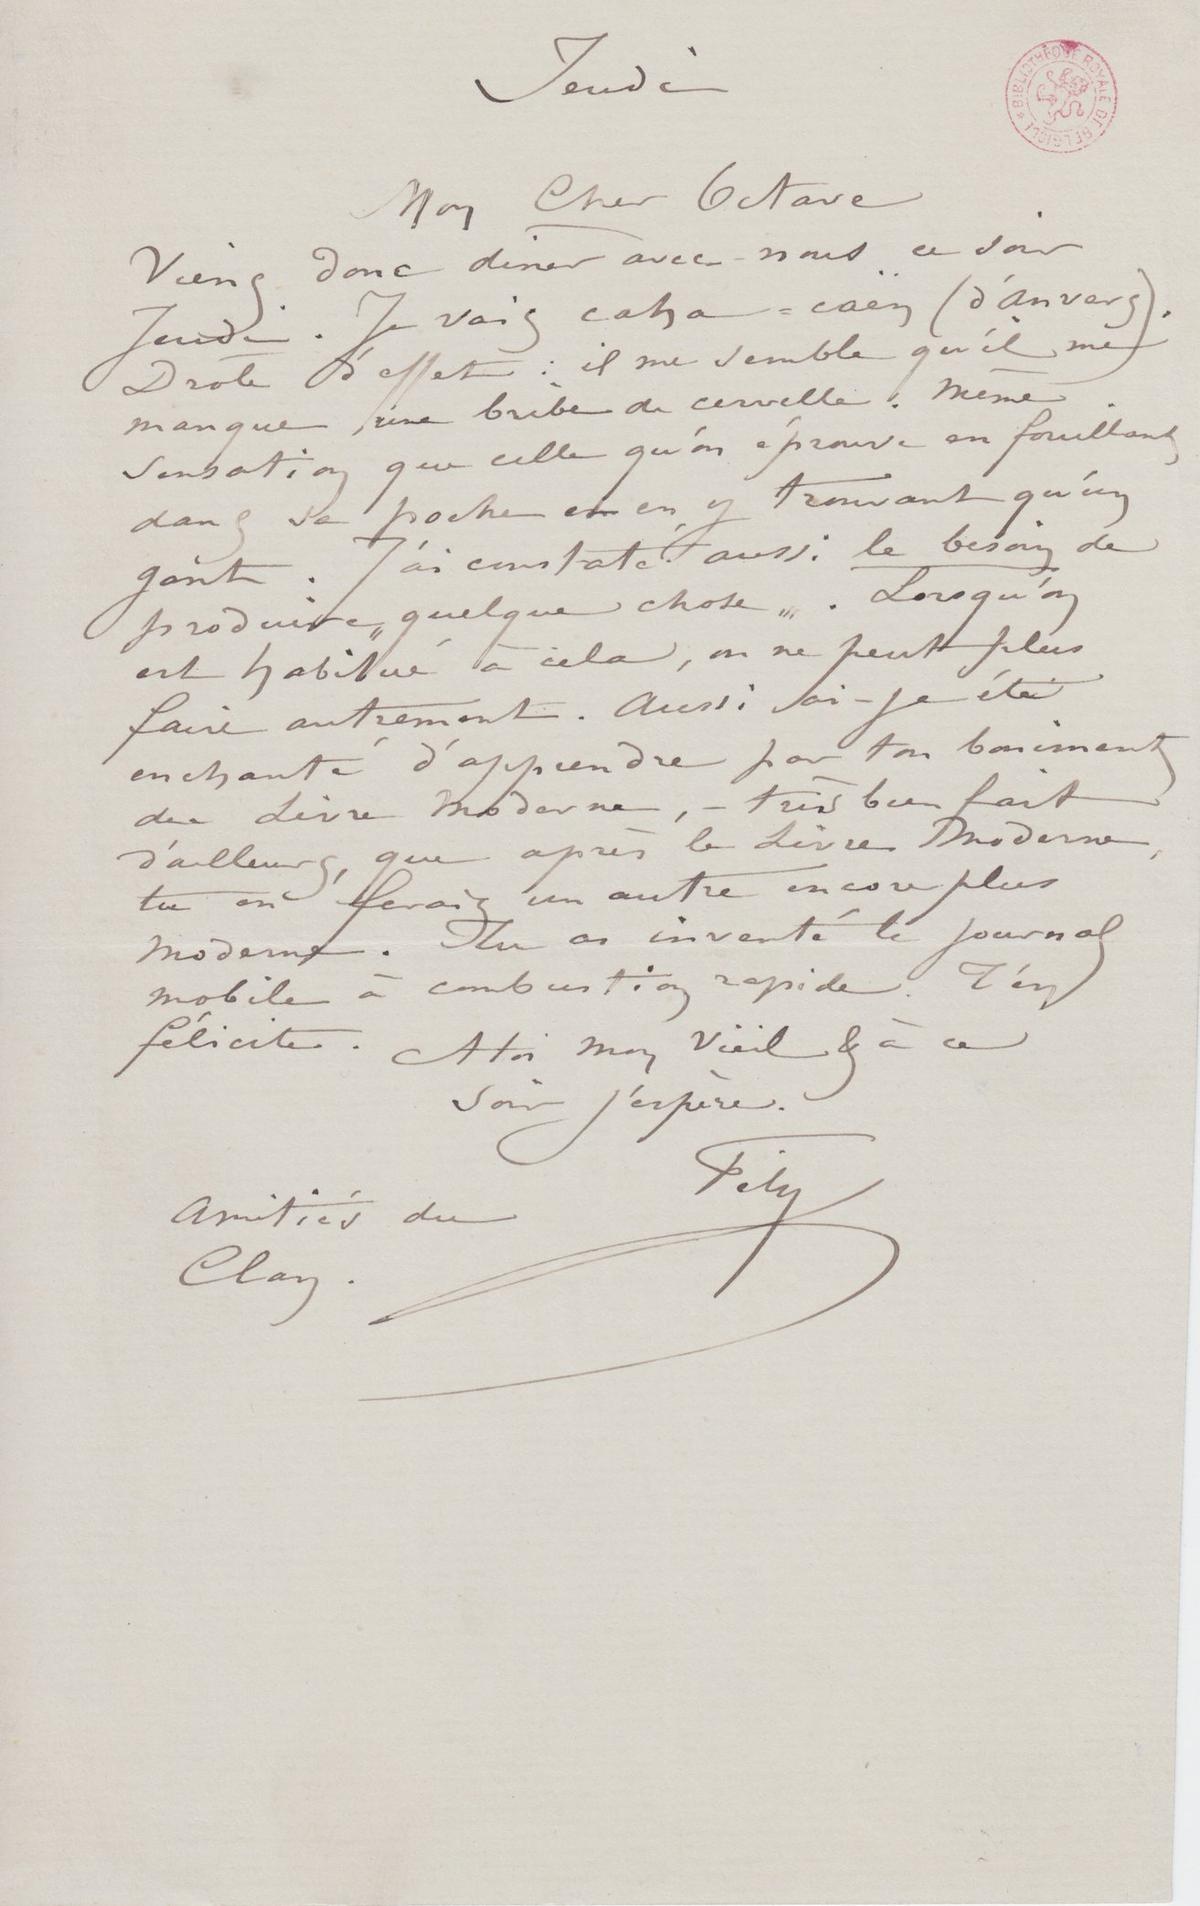 Jeudi
BIBLIOTHÈQUE ROYALE DE BELGIQUE
Mon Cher Octave
Viens donc diner avec nous ce soir
Jeudi. Je vais caha-caën (d'Anvers).
Drole d'effet : il me semble qu'il me
manque une bribe de cervelle. Même
sensation que celle qu'on éprouve en fouillant
dans sa poche en y trouvant qu'un
gant. J'ai constaté aussi le besoin de
produire „quelque chose„. Lorsqu'on
est habitué à cela, on ne peut plus
faire autrement. Aussi ai-je été
enchanté d'apprendre par ton boniment
du Livre Moderne, – très bien fait
d'ailleurs, que après le Livre Moderne,
tu en ferais un autre encore plus
moderne. Tu as inventé le journal
mobile à combustion rapide. T'en
félicite. A toi mon vieil & à ce
soir j'espère.
Fély
Amitiés du
Clan.